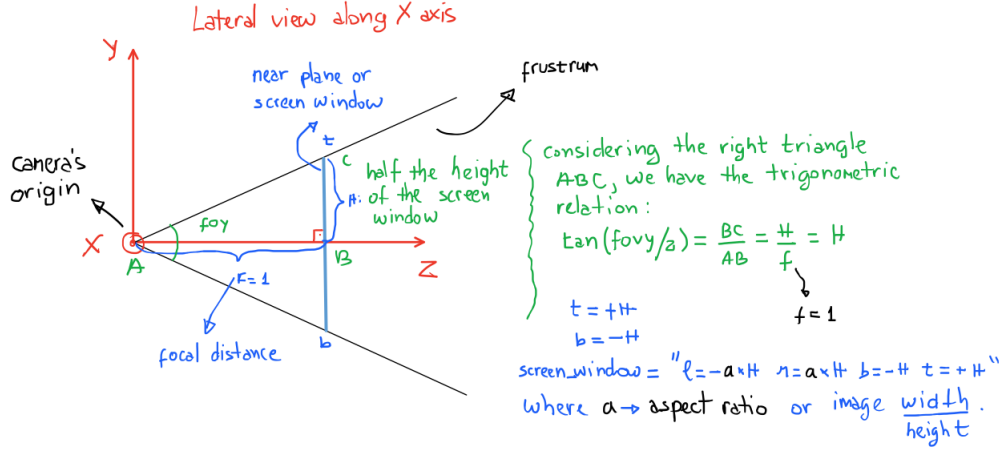 Lateral view along X axis
Y
near plane or
screen window
frustrum
t
C
camera's
origin
half the height
of the screen
window
H:
foy
X
A
B
Z
F=1
focal distance
b
considering the right triangle
ABC, we have the trigonometric
relation:
tan(fovy/2) = BC/AB = H/f = H
f=1
t=+H
b=-H
screen_window = "l=-a*H r=a*H b=-H t=+H"
where a → aspect ratio or image width/height.